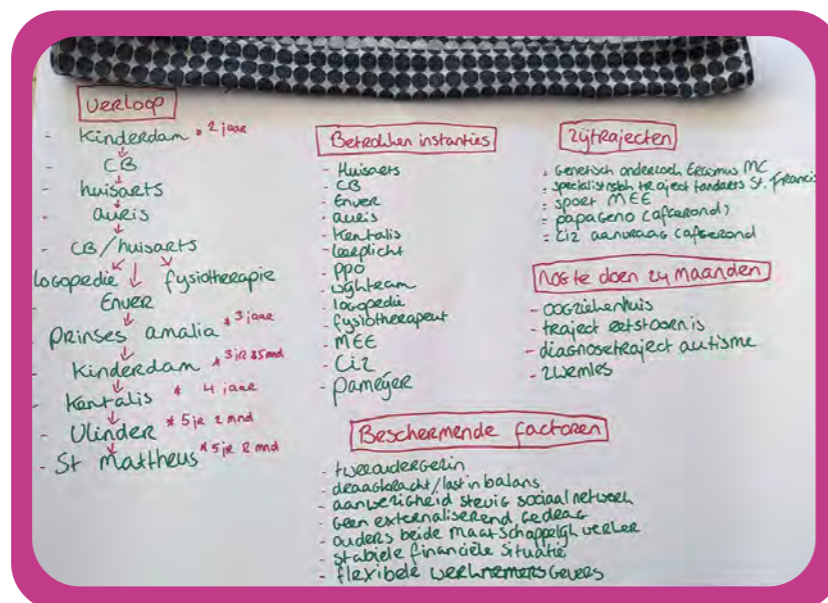 verloop
- Kinderdam * 2 jaar
- CB
- huisarts
- auris
- CB/huisarts
logopedie fysiotherapie
Enver
- Prinses amalia * 3 jaar
- Kinderdam * 3 jr & 5 mnd
- Kentalis * 4 jaar
- Vlinder * 5 jr 2 mnd
- St Mattheus * 5 jr 2 mnd
Betrokken instanties
- Huisarts
- CB
- Enver
- auris
- Kentalis
- leerplicht
- PPO
- wijkteam
- logopedie
- fysiotherapeut
- MEE
- Ciz
- Pameijer
Zijtrajecten
- Genetisch onderzoek Erasmus MC
- specialistisch traject tandarts St. Francis
- sport MEE
- papageno (afgerond)
- Ciz aanvraag (afgerond
nog te doen 24 maanden
- oogziekenhuis
- traject eetstoornis
- diagnosetraject autisme
- zwemles
Beschermende factoren
- tweeoudergezin
- draagkracht/last in balans
- aanwezigheid stevig sociaal netwerk
- geen externaliserend gedrag
- ouders beide maatschappelijk werker
- stabiele financiële situatie
- flexibele werknemers gevers